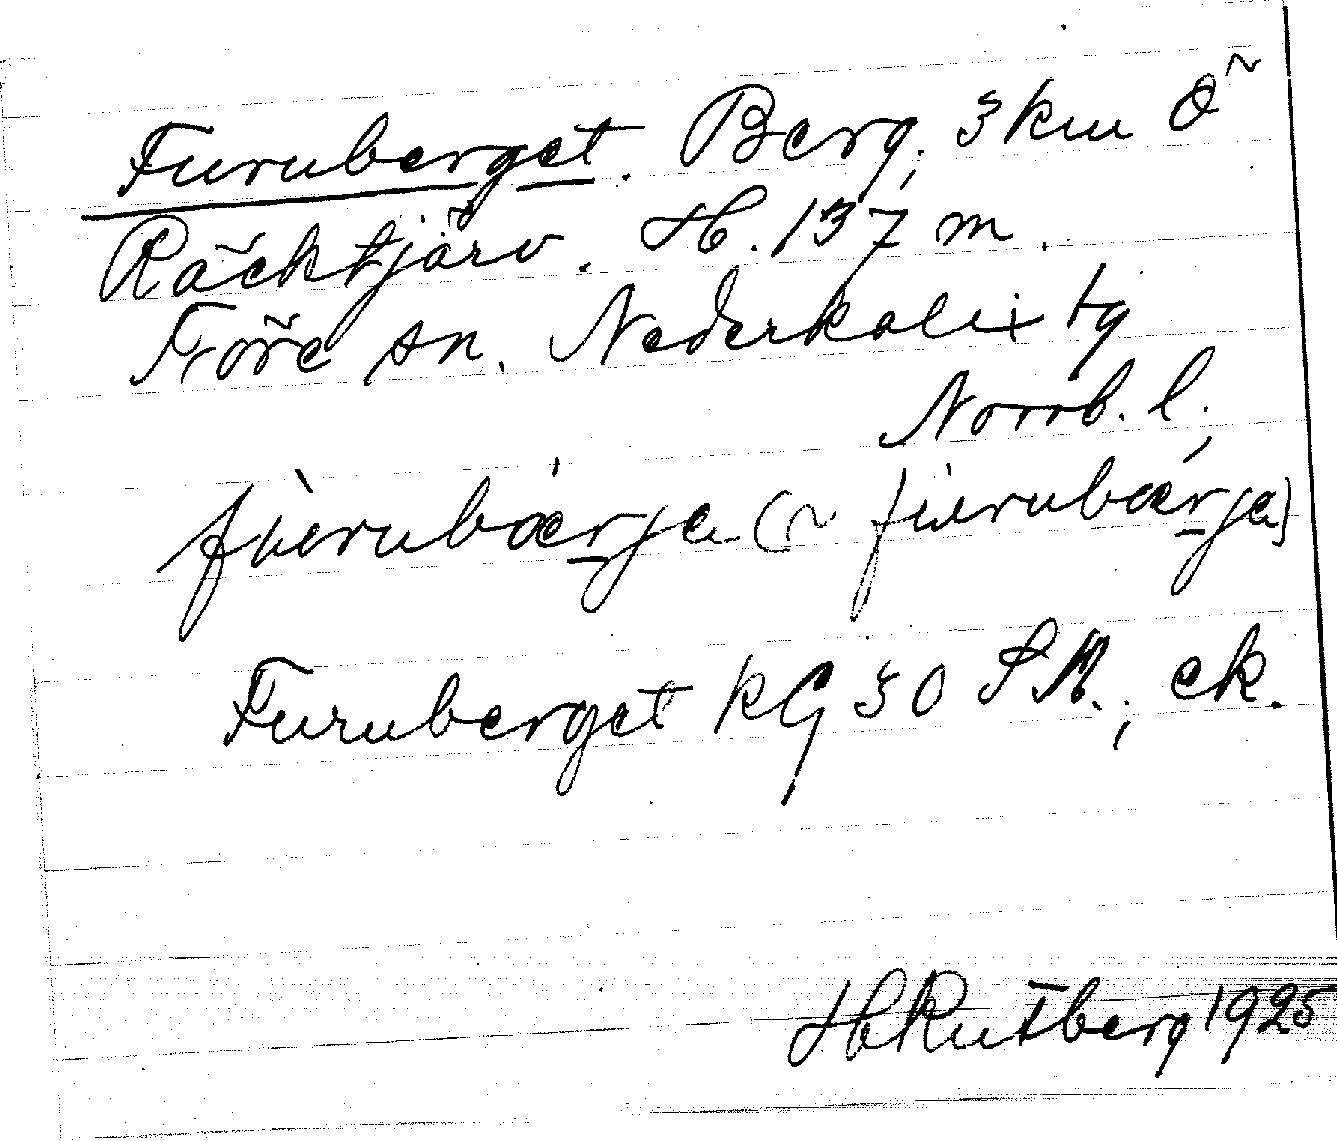 Furuberget. Berg, 3 km Ö
Räcktjärv. H. 137 m.
Töre sn. Nederkalix tg
Norrb. l.
fùrubær̲ja (~ fùrubær̲ja)
Furuberget KG 30 SM., ek.
H Rutberg 1925